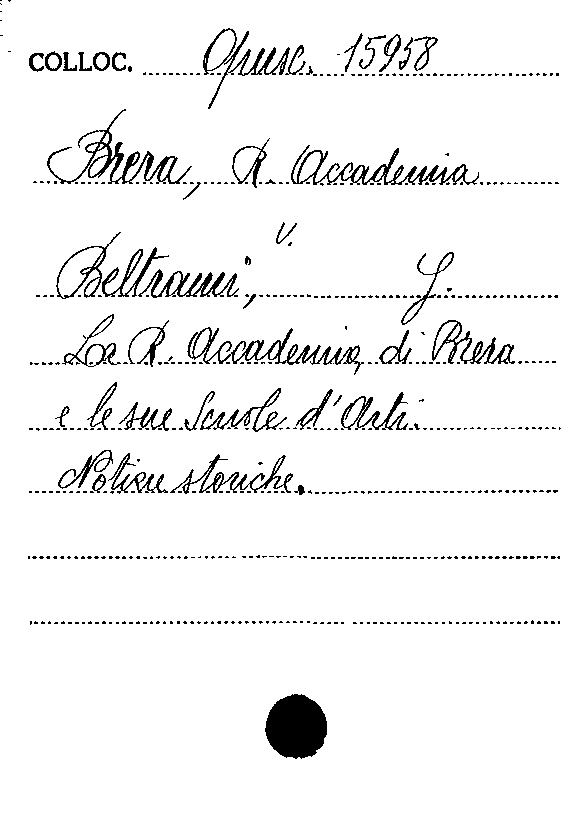 COLLOC. Opusc. 15958
Brera, R. Accademia
v.
Beltrami, G.
La R. Accademia di Brera
e le sue Scuole d'Arti.
Notizie storiche.